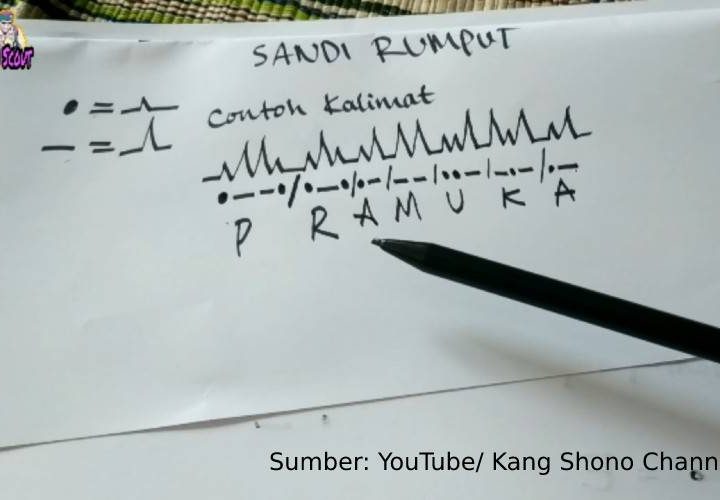 SCOUT
SANDI RUMPUT
• =
Contoh Kalimat
— =
•——•/•—•/•—/——/••—/—•—/•—
P R A M U K A
Sumber: YouTube/ Kang Shono Chann